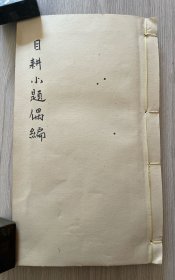 目耕小題偶編